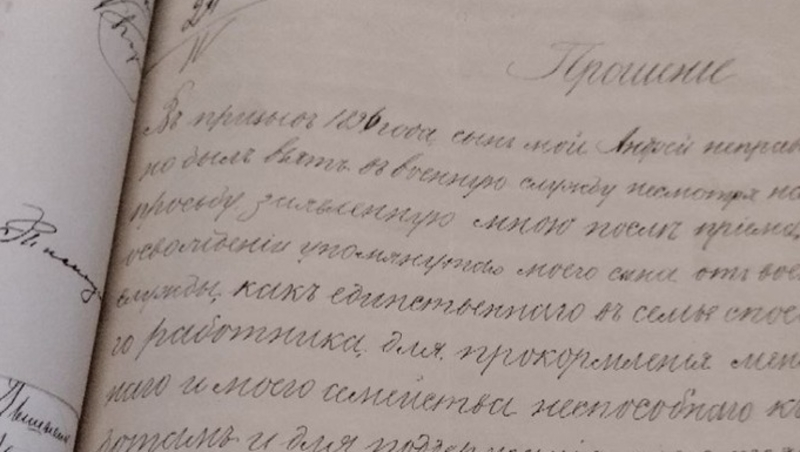 29
IV
Прошенie
Въ призывъ 1896 года, сынъ мой Андрей неправ
но былъ взятъ въ военную службу несмотря на
просьбу, заявленную мною послѣ прiема,
освобожденiи упомянутаго моего сына отъ вое
службы, какъ единственнаго въ семьѣ спос
го работника, для прокормленiя мен
наго и моего семейства неспособнаго къ
ботамъ и для поддер